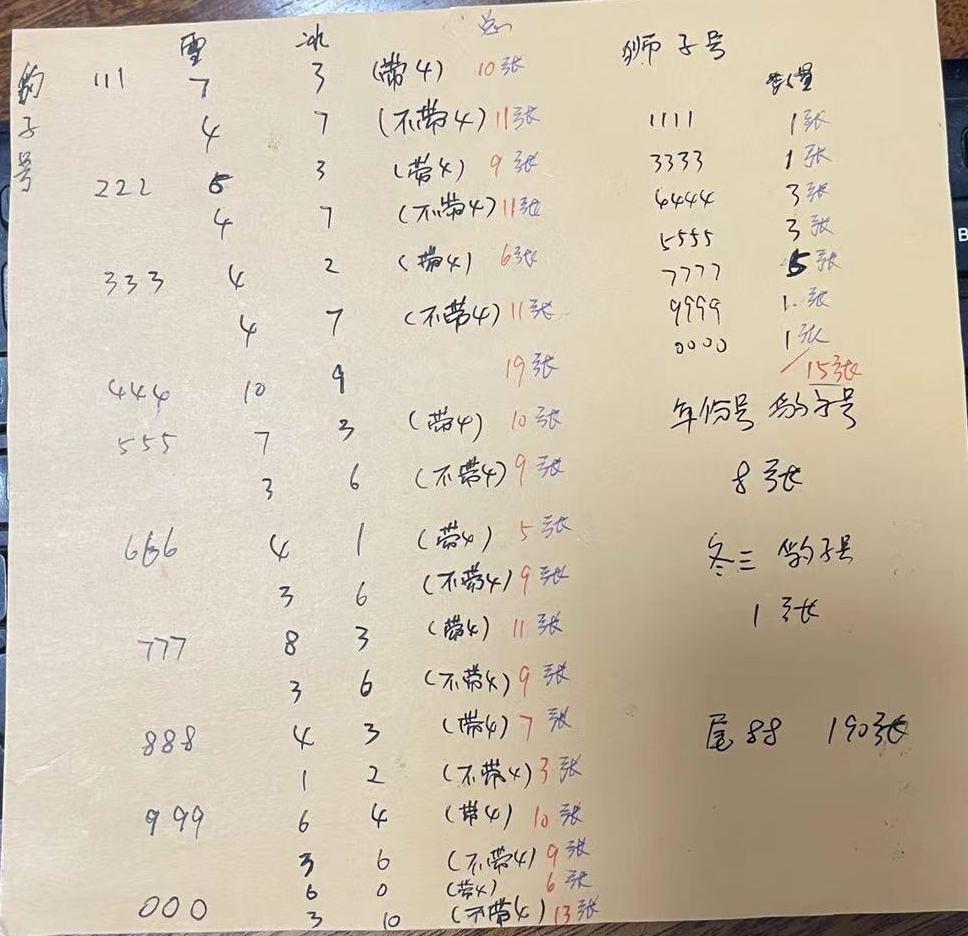 雪 冰 总
豹子号
111 7 3 (带4) 10张
4 7 (不带4) 11张
222 6 3 (带4) 9张
4 7 (不带4) 11张
333 4 2 (带4) 6张
4 7 (不带4) 11张
444 10 9 19张
555 7 3 (带4) 10张
3 6 (不带4) 9张
666 4 1 (带4) 5张
3 6 (不带4) 9张
777 8 3 (带4) 11张
3 6 (不带4) 9张
888 4 3 (带4) 7张
1 2 (不带4) 3张
999 6 4 (带4) 10张
3 6 (不带4) 9张
000 6 0 (带4) 6张
3 10 (不带4) 13张
狮子号
数量
1111 1张
3333 1张
4444 3张
5555 3张
7777 5张
9999 1张
0000 1张
15张
年份号 豹子号
8张
冬三 豹子号
1张
尾88 190张
B